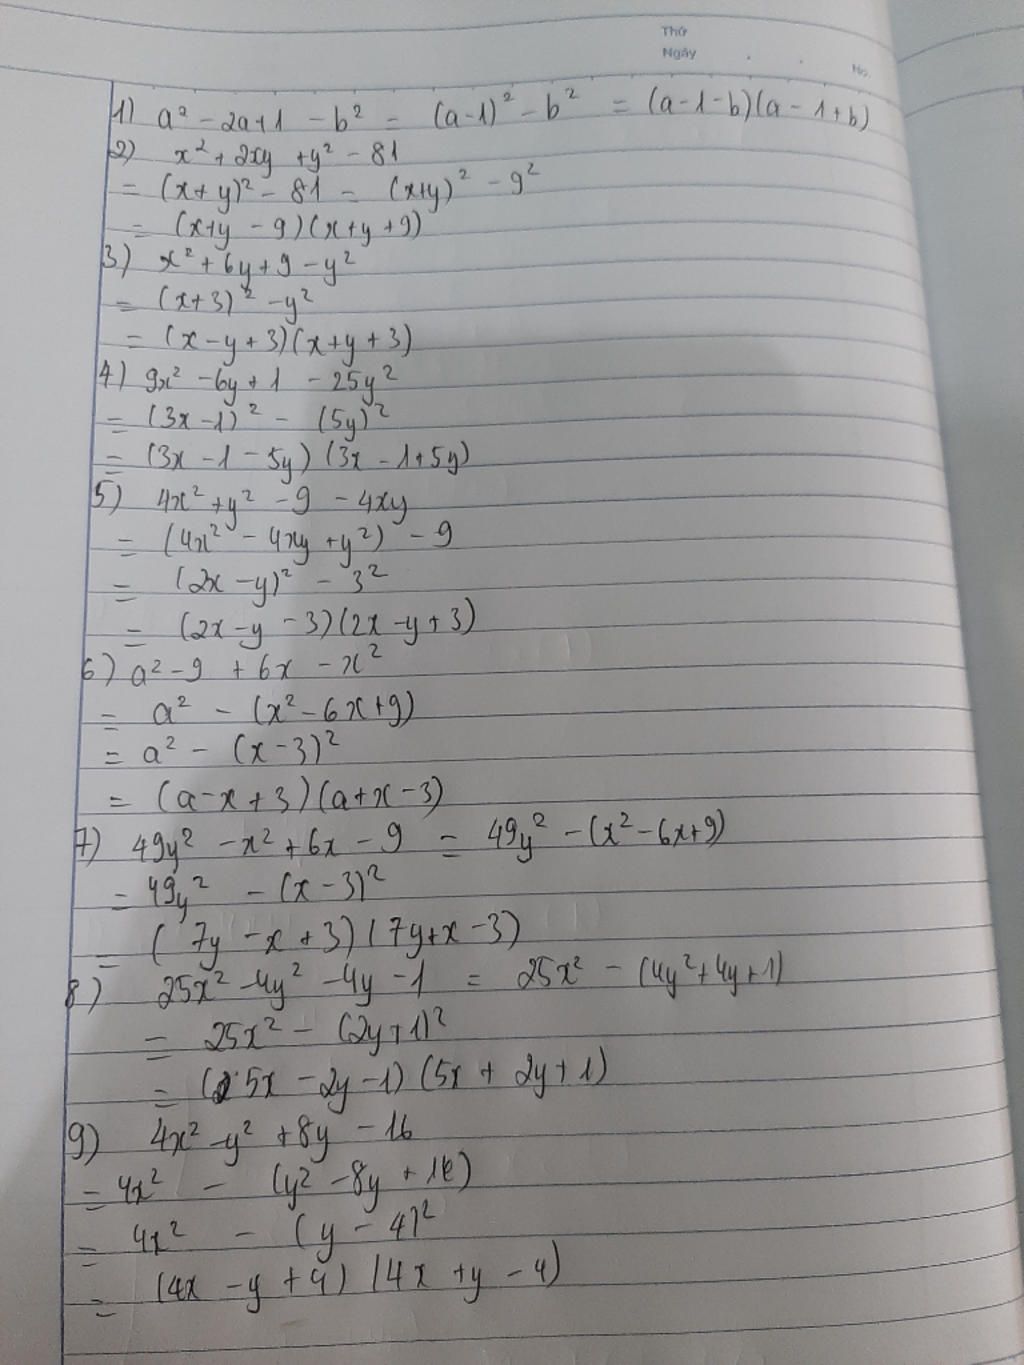 Thứ
Ngày . .
No.
1) a² - 2a+1 - b² = (a-1)² - b² = (a-1-b)(a-1+b)
2) x² + 2xy + y² - 81
= (x+y)² - 81 = (x+y)² - 9²
= (x+y - 9)(x+y+9)
3) x² + 6y + 9 - y²
= (x+3)² - y²
= (x-y+3)(x+y+3)
4) 9x² - 6y + 1 - 25y²
= (3x-1)² - (5y)²
= (3x - 1 - 5y)(3x - 1+5y)
5) 4x² + y² - 9 - 4xy
= (4x² - 4xy + y²) - 9
= (2x - y)² - 3²
= (2x-y - 3)(2x - y+3)
6) a² - 9 + 6x - x²
= a² - (x² - 6x+9)
= a² - (x-3)²
= (a-x+3)(a+x-3)
7) 49y² - x² + 6x - 9 = 49y² - (x² - 6x+9)
= 49y² - (x-3)²
= (7y - x + 3)(7y+x - 3)
8) 25x² - 4y² - 4y - 1 = 25x² - (4y² + 4y + 1)
= 25x² - (2y+1)²
= (5x - 2y - 1)(5x + 2y + 1)
9) 4x² - y² + 8y - 16
= 4x² - (y² - 8y + 16)
= 4x² - (y - 4)²
= (4x - y + 4)(4x + y - 4)